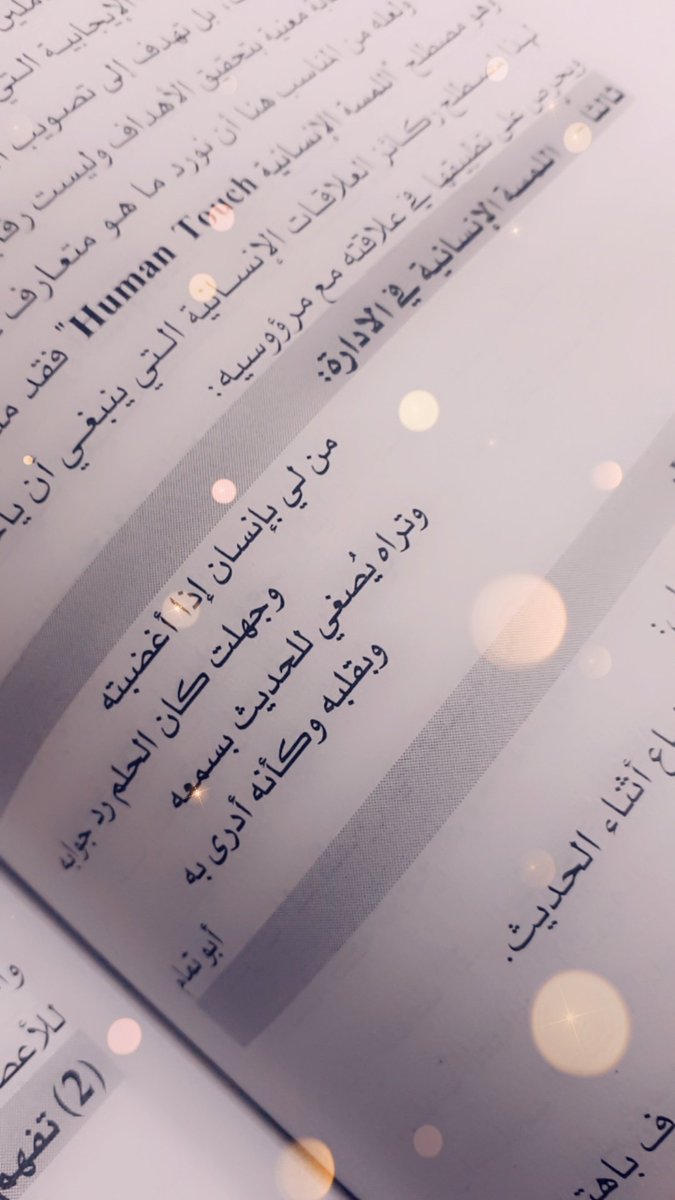 الإيجابية التي
بل تهدف إلى تصويب
معنية بتحقيق الأهداف وليست
ولعله من المناسب هنا أن نورد ما هو متعارف
وهو مصطلح "اللمسة الإنسانية Human Touch" فقد
المصطلح ركائز العلاقات الإنسانية التي ينبغي أن
ويحرص على تطبيقها في علاقته مع مرؤوسيه:
ثالثاً - اللمسة الإنسانية في الادارة:
من لي بإنسان إذا أغضبته
وجهلت كان الحلم رد جوابه
وتراه يُصغي للحديث بسمعه
وبقلبه وكأنه أدرى به
أبو تمام
أثناء الحديث.
(2) تفهم